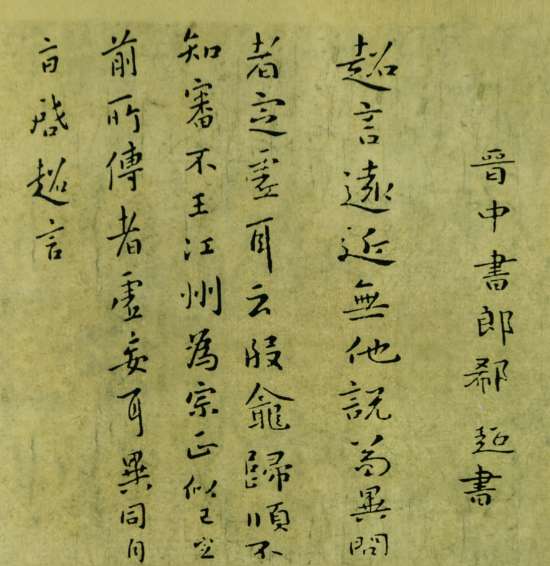 晉中書郎郗超書
超言遠近無他說前異問
者定虛耳云殷龕歸順不
知審不王江州為宗正似已定
前所傳者虛妄耳異同自
啓超言